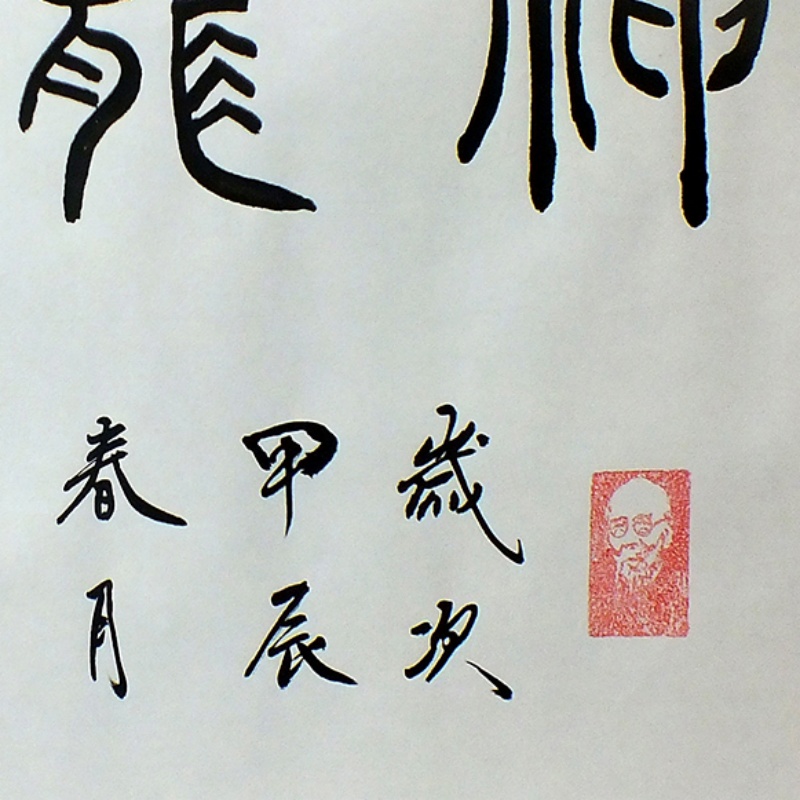 神龍
歲次
甲辰
春月